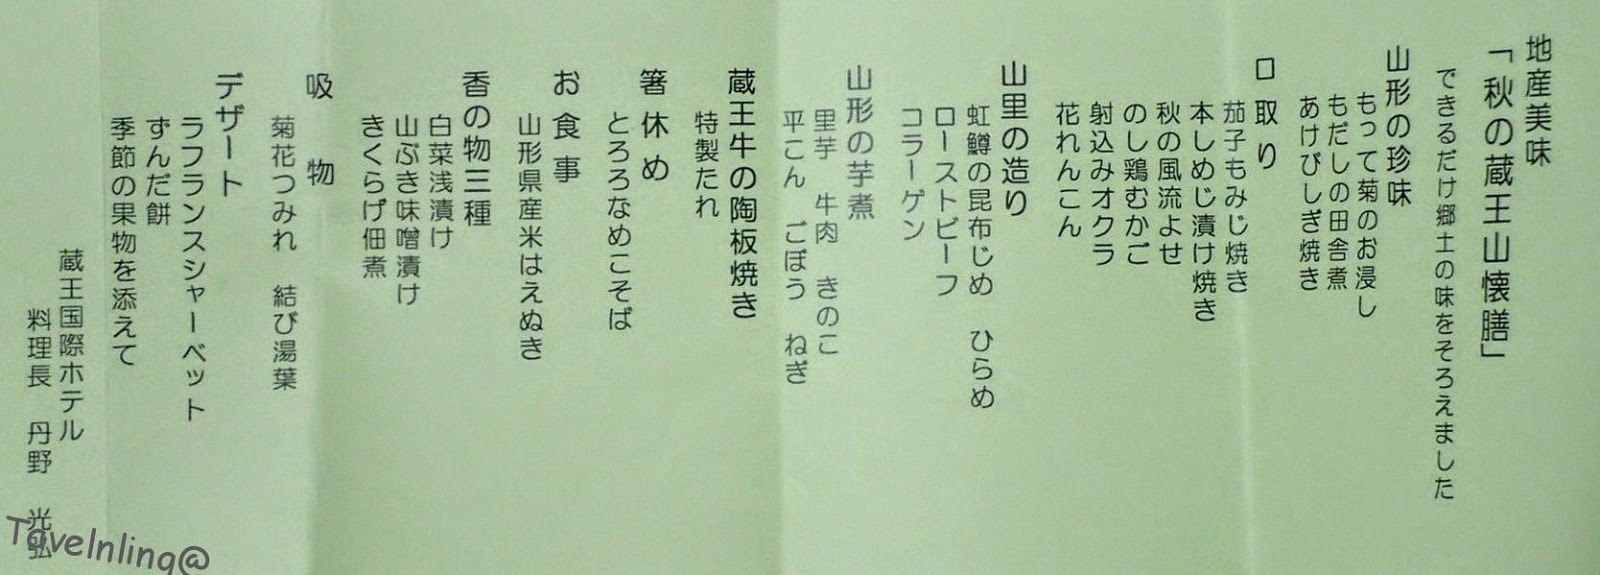 地産美味
「秋の蔵王山懐膳」
できるだけ郷土の味をそろえました
山形の珍味
もって菊のお浸し
もだしの田舎煮
あけびしぎ焼き
口取り
茄子もみじ焼き
本しめじ漬け焼き
秋の風流よせ
のし鶏むかご
射込みオクラ
花れんこん
山里の造り
虹鱒の昆布じめ　ひらめ
ローストビーフ
コラーゲン
山形の芋煮
里芋　牛肉　きのこ
平こん　ごぼう　ねぎ
蔵王牛の陶板焼き
特製たれ
箸休め
とろろなめこそば
お食事
山形県産米はえぬき
香の物三種
白菜浅漬け
山ぶき味噌漬け
きくらげ佃煮
吸　物
菊花つみれ　結び湯葉
デザート
ラフランスシャーベット
ずんだ餅
季節の果物を添えて
蔵王国際ホテル
料理長　丹野　光弘
Tavelnling@